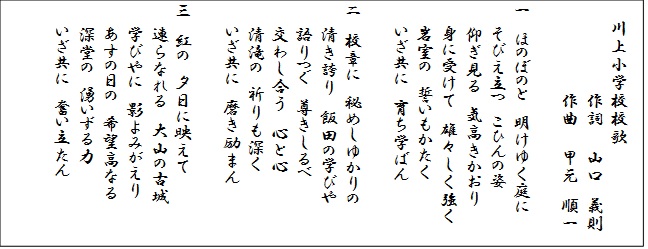 川上小学校校歌
作詞 山口 義則
作曲 甲元 順一
一 ほのぼのと 明けゆく庭に
そびえ立つ こひんの姿
仰ぎ見る 気高きかおり
身に受けて 雄々しく強く
岩室の 誓いもかたく
いざ共に 育ち学ばん
二 校章に 秘めしゆかりの
清き誇り 飯田の学びや
語りつぐ 尊きしるべ
交わし合う 心と心
清滝の 祈りも深く
いざ共に 磨き励まん
三 紅の 夕日に映えて
連らなれる 大山の古城
学びやに 影よみがえり
あすの日の 希望高なる
深堂の 湧いずる力
いざ共に 奮い立たん